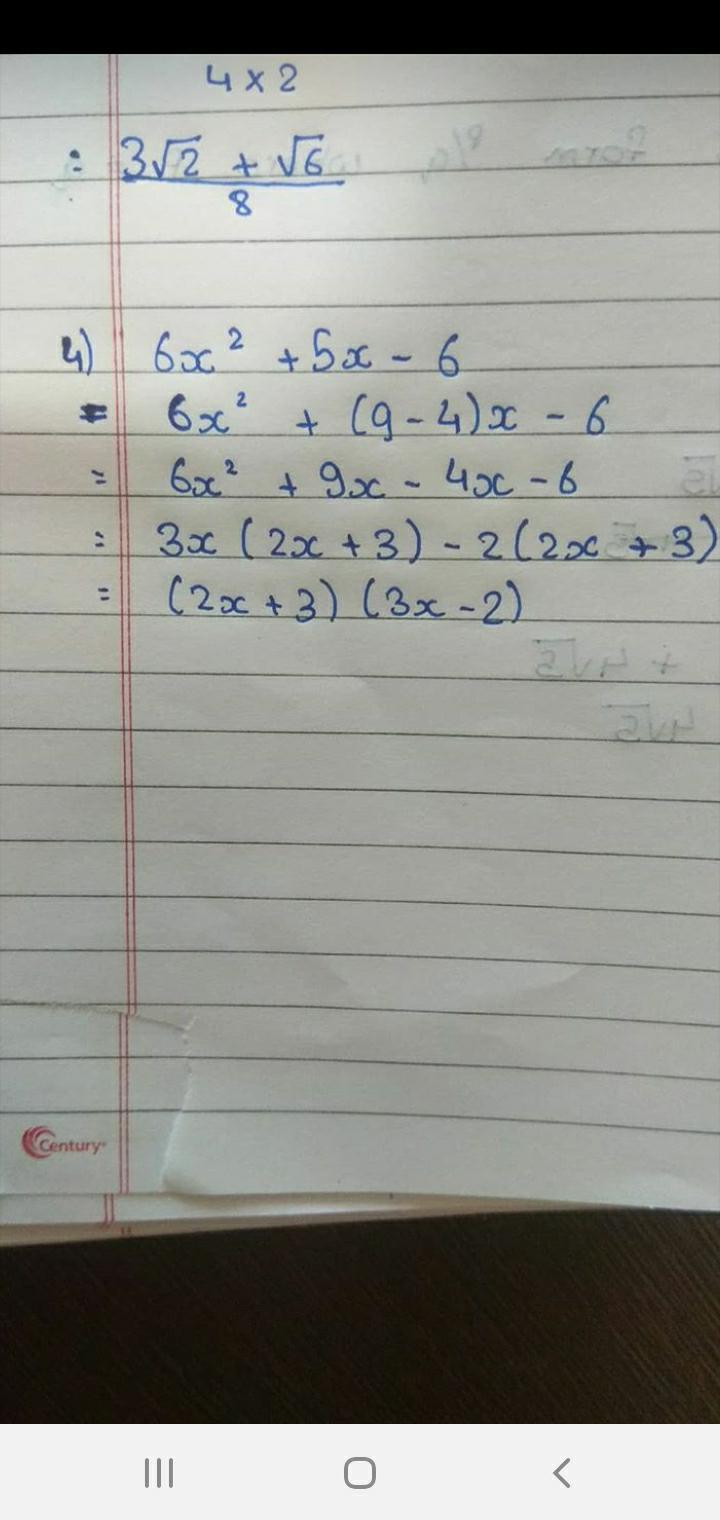 4 × 2
= 3√2 + √6
8
4) 6x² + 5x - 6
= 6x² + (9 - 4)x - 6
= 6x² + 9x - 4x - 6
= 3x (2x + 3) - 2 (2x + 3)
= (2x + 3) (3x - 2)
Century